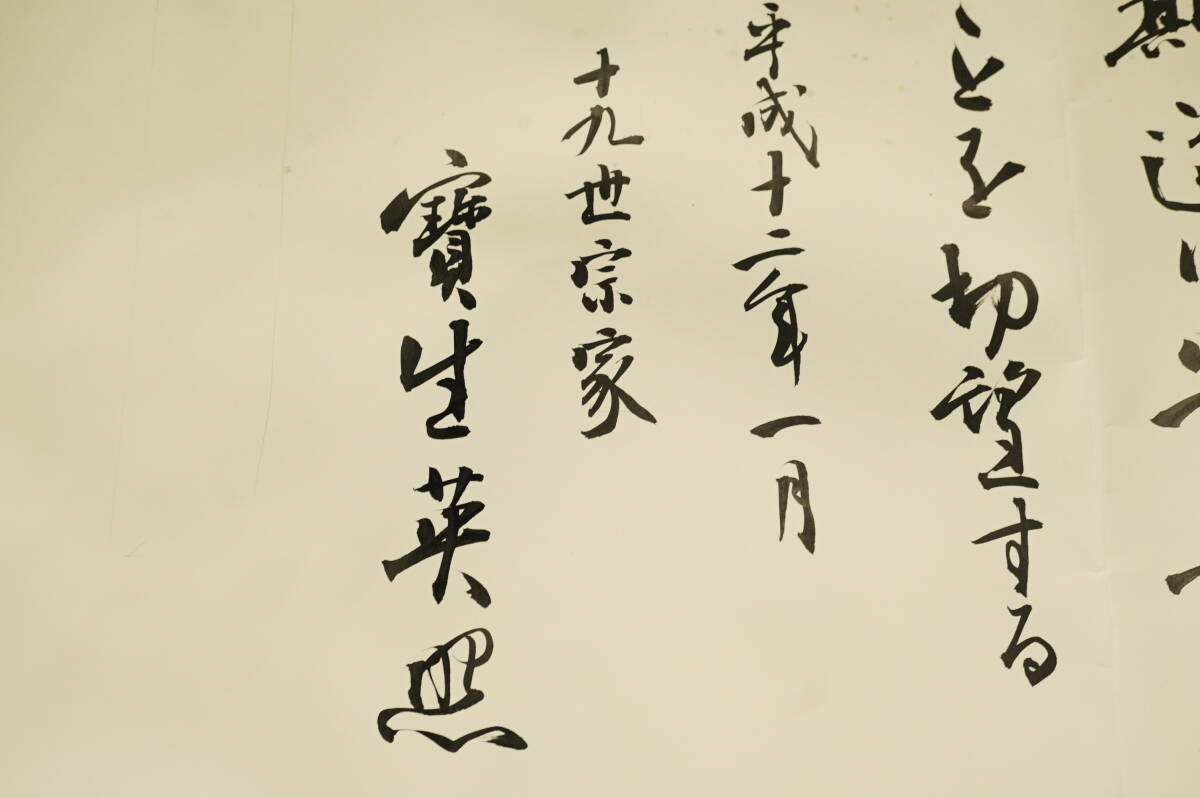 ことを切望する
平成十二年一月
十九世宗家
寶生英照